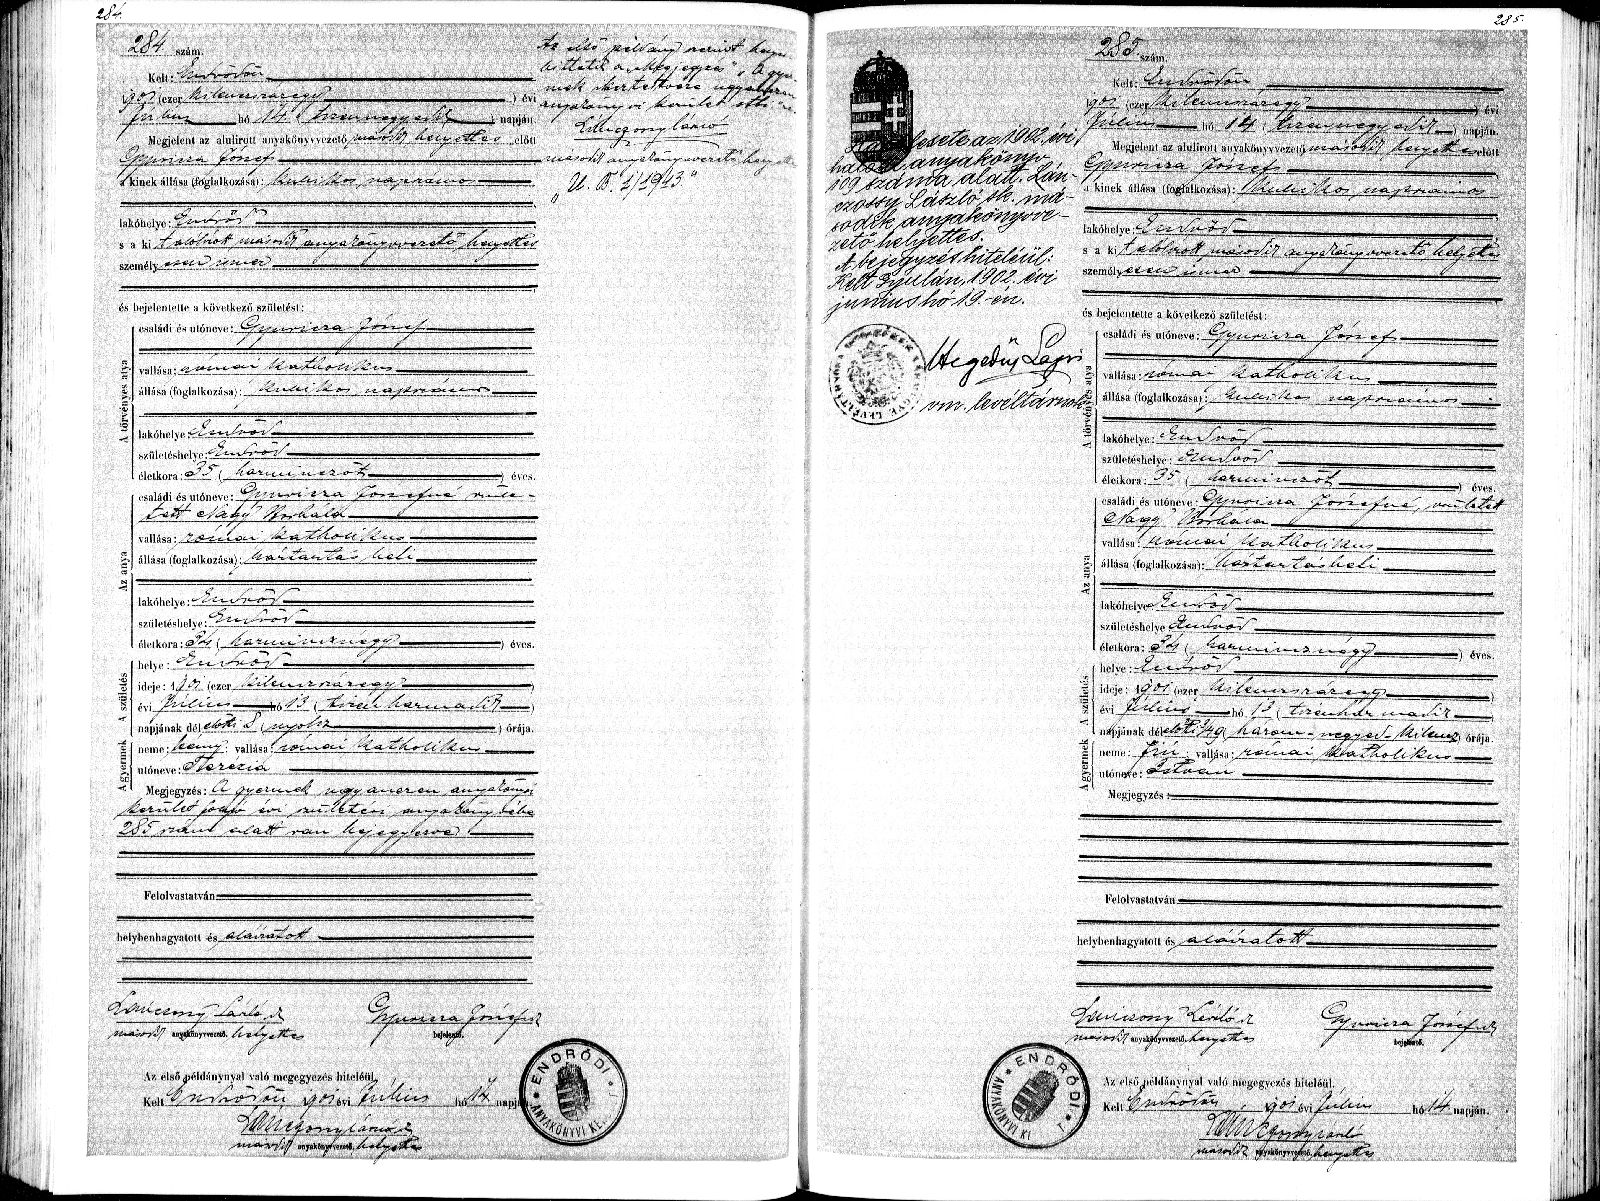 284.
284. szám.
Kelt: Endrődön
1901 (ezer kilenczszázegy) évi
Július hó 14 (tizennegyedik) napján.
Megjelent az alulirott anyakönyvvezető másodk helyettes előtt
Gyuricza József
a kinek állása (foglalkozása): kubikos napszámos
lakóhelye: Endrőd
s a ki t alólírott másodk anyakönyvvezető helyettes
személyesen ismer
és bejelentette a következő születést:
A törvényes atya
családi és utóneve: Gyuricza József
vallása: római katholikus
állása (foglalkozása): kubikos, napszámos
lakóhelye: Endrőd
születéshelye: Endrőd
életkora: 35 (harminczöt) éves.
Az anya
családi és utóneve: Gyuricza Józsefné szüle-
tett Nagy Borbála
vallása: római katholikus
állása (foglalkozása): háztartásbeli
lakóhelye: Endrőd
születéshelye: Endrőd
életkora: 34 (harmincznégy) éves.
A születés
helye: Endrőd
ideje: 1901 (ezer kilenczszázegy)
évi Július hó 13 (tizenharmadik)
napjának délelőtti 8 (nyolcz) órája.
A gyermek
neme: leány vallása: római katholikus
utóneve: Terézia
Megjegyzés: A gyermek ugyanezen anyakönyvi
kerület folyó évi születési anyakönyvébe
285 szám alatt van bejegyezve
Felolvastatván
helybenhagyatott és aláiratott
másodk anyakönyvvezető, helyettes
Gyuricza József
bejelentő.
Az első példánynyal való megegyezés hiteléül
Kelt Endrődön 1901 évi Július hó 14 napján.
másodk anyakönyvvezető, helyettes
ENDRŐDI
ANYAKÖNYVI KE
Az első példány szerint
hittetik a "Megjegyzés"
anyakönyvi kerület
másodk anyakönyvvezető helyettes
"U. B. 1/1943"
285.
285. szám.
lesete az 1902. évi
halotti anyakönyv
109 száma alatt. Lán-
czossy László sk. má-
sodik anyakönyvve-
zető helyettes.
A bejegyzés hiteléül:
Kelt Gyulán, 1902. évi
junius hó 19-én.
vm. levéltárnok
Kelt: Endrődön
1901 (ezer kilenczszázegy) évi
Július hó 14 (tizennegyedik) napján.
Megjelent az alulirott anyakönyvvezető másodk helyettes előtt
Gyuricza József
a kinek állása (foglalkozása): kubikos napszámos
lakóhelye: Endrőd
s a ki t alólírott másodk anyakönyvvezető helyettes
személyesen ismer
és bejelentette a következő születést:
A törvényes atya
családi és utóneve: Gyuricza József
vallása: római katholikus
állása (foglalkozása): kubikos napszámos
lakóhelye: Endrőd
születéshelye: Endrőd
életkora: 35 (harminczöt) éves.
Az anya
családi és utóneve: Gyuricza Józsefné, született
Nagy Borbála
vallása: római katholikus
állása (foglalkozása): háztartásbeli
lakóhelye: Endrőd
születéshelye Endrőd
életkora: 34 (harmincznégy) éves.
A születés
helye: Endrőd
ideje: 1901 (ezer kilenczszázegy)
évi Július hó 13 (tizenharmadik)
napjának délelőtti 3/4 9 (három-negyed-kilencz) órája.
A gyermek
neme: fiú vallása: római katholikus
utóneve: István
Megjegyzés:
Felolvastatván
helybenhagyatott és aláiratott
másodk anyakönyvvezető, helyettes
Gyuricza József
bejelentő.
Az első példánynyal való megegyezés hiteléül.
Kelt Endrődön 1901 évi Július hó 14 napján.
másodk anyakönyvvezető, helyettes
ENDRŐDI
ANYAKÖNYVI KE